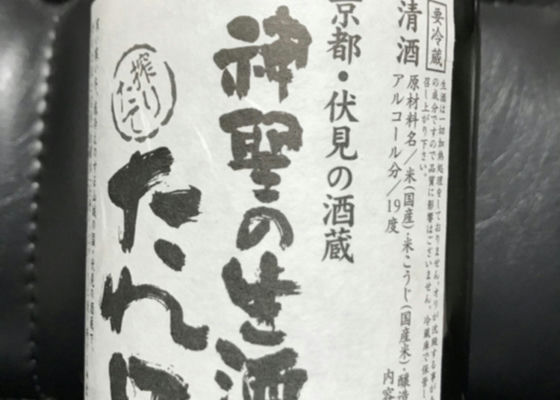 要冷蔵
清酒
生酒は一切加熱処理をしておりません。オリが沈殿する事が
の成分ですので品質に影響はございません。冷蔵庫で保管し
召し上がり下さい。
原材料名/米(国産)・米こうじ(国産米)・醸造
アルコール分/19度
内容
京都・伏見の酒蔵
神聖の生酒
搾り
たて
たれ口